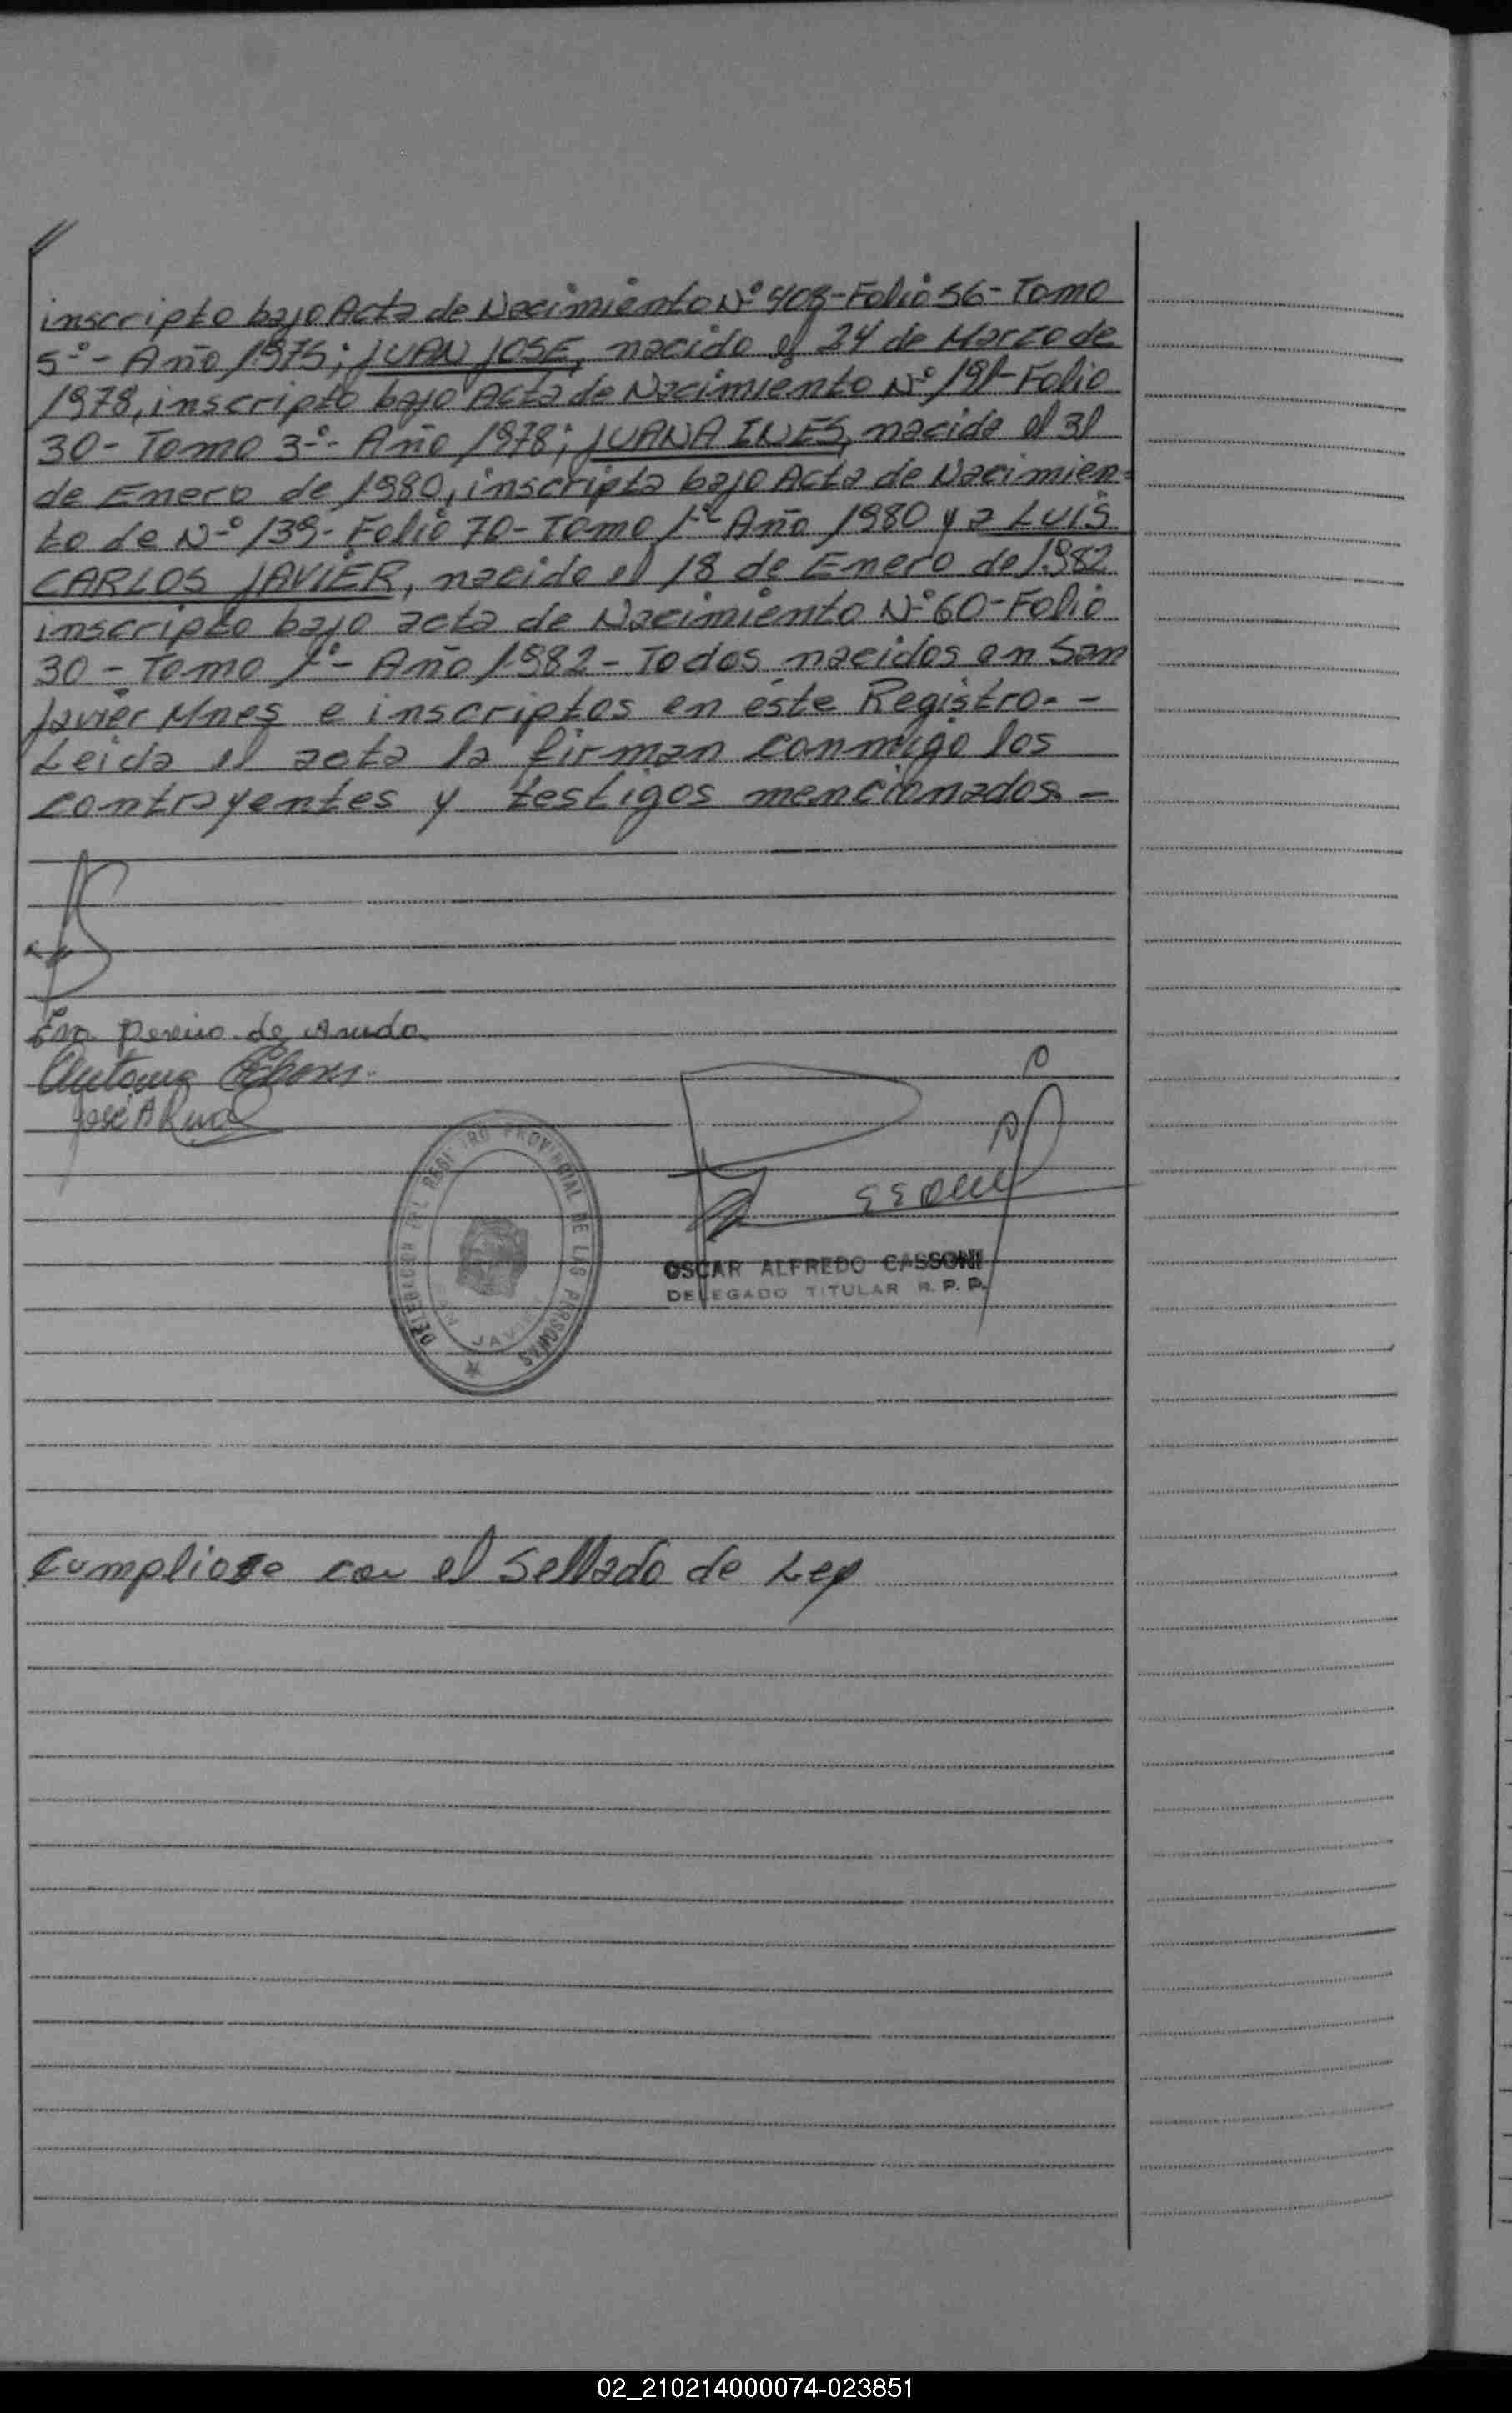 inscripto bajo Acta de Nacimiento Nº 408-Folio 56-Tomo
5º- Año 1975; JUAN JOSE, nacido el 24 de Marzo de
1978, inscripto bajo Acta de Nacimiento Nº 191-Folio
30- Tomo 3º- Año 1978; JUANA INES, nacida el 31
de Enero de 1980, inscripta bajo Acta de Nacimien-
to de Nº 139- Folio 70- Tomo 1º- Año 1980 y a LUIS
CARLOS JAVIER, nacido el 18 de Enero de 1982
inscripto bajo acta de Nacimiento Nº 60-Folio
30- Tomo 1º- Año 1982- Todos nacidos en San
Javier Mnes e inscriptos en éste Registro.-
Leida el acta la firman conmigo los
contrayentes y testigos mencionados.-
de
José A
DELEGACION DEL REGISTRO PROVINCIAL DE LAS PERSONAS
SAN JAVIER
OSCAR ALFREDO CASSONI
DELEGADO TITULAR R. P. P.
Cumpliose con el Sellado de Ley
02_210214000074-023851